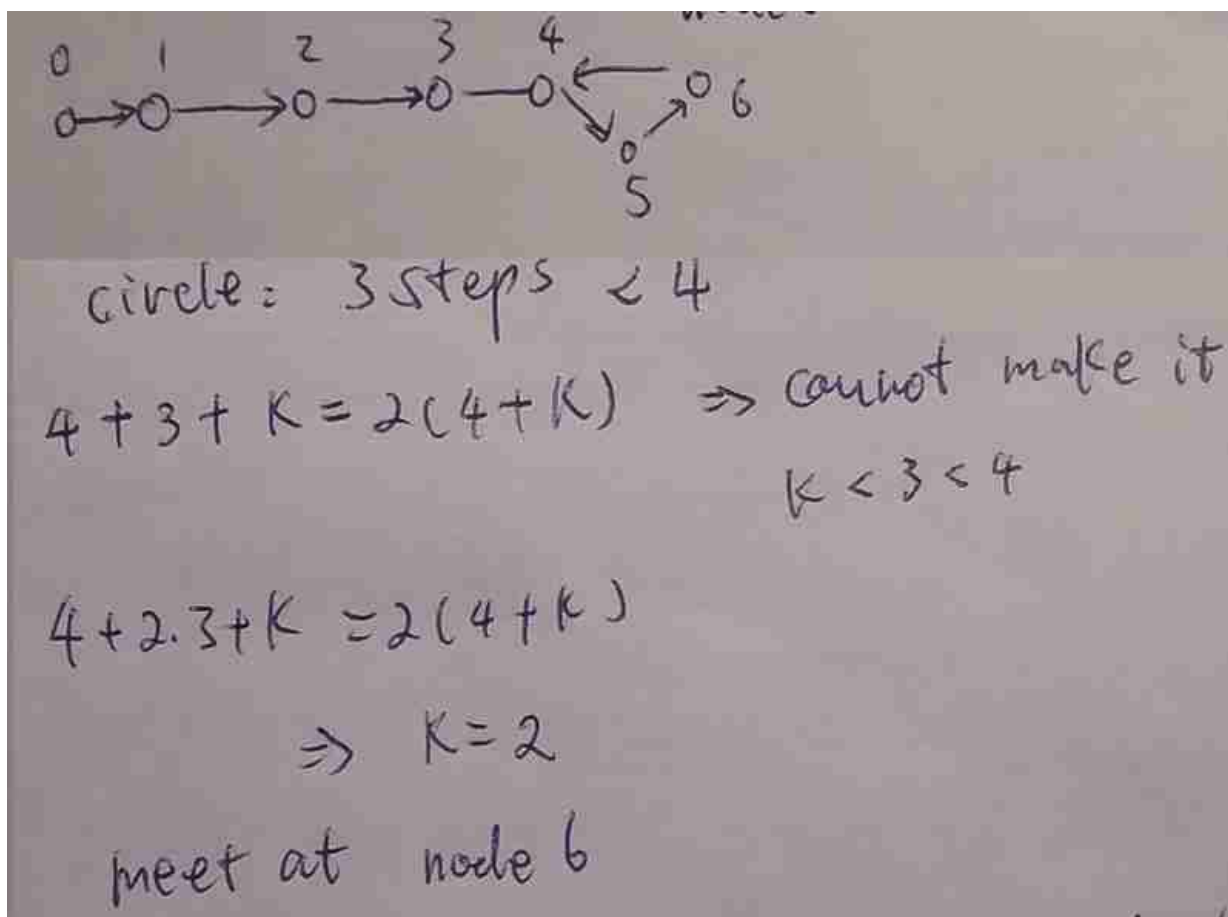 0 1 2 3 4
6
5
circle: 3 steps < 4
4 + 3 + K = 2(4+K) => cannot make it
K < 3 < 4
4+2.3+K = 2(4+K)
=> K=2
meet at node 6